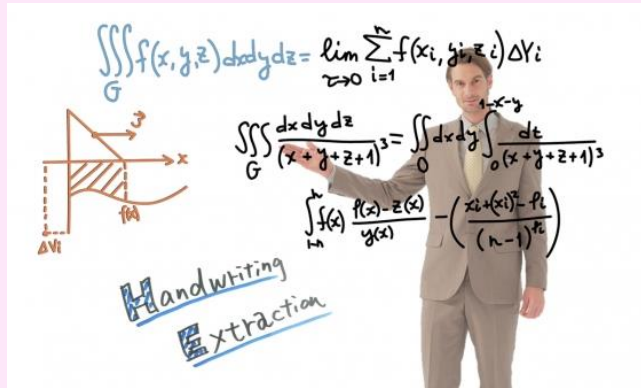 ∭_G f(x,y,z) dxdydz = lim_{τ→0} ∑_{i=1}^{n} f(xi, yi, zi) ΔVi
∭_G dxdydz/(x+y+z+1)³ = ∬_D dxdy ∫_0^{1-x-y} dt/(x+y+z+1)³
f(x) f(x)-z(x)/y(x) - (xi+(xi)²-fi/(n-1)^fi)
x
f(x)
ΔVi
Handwriting
Extraction